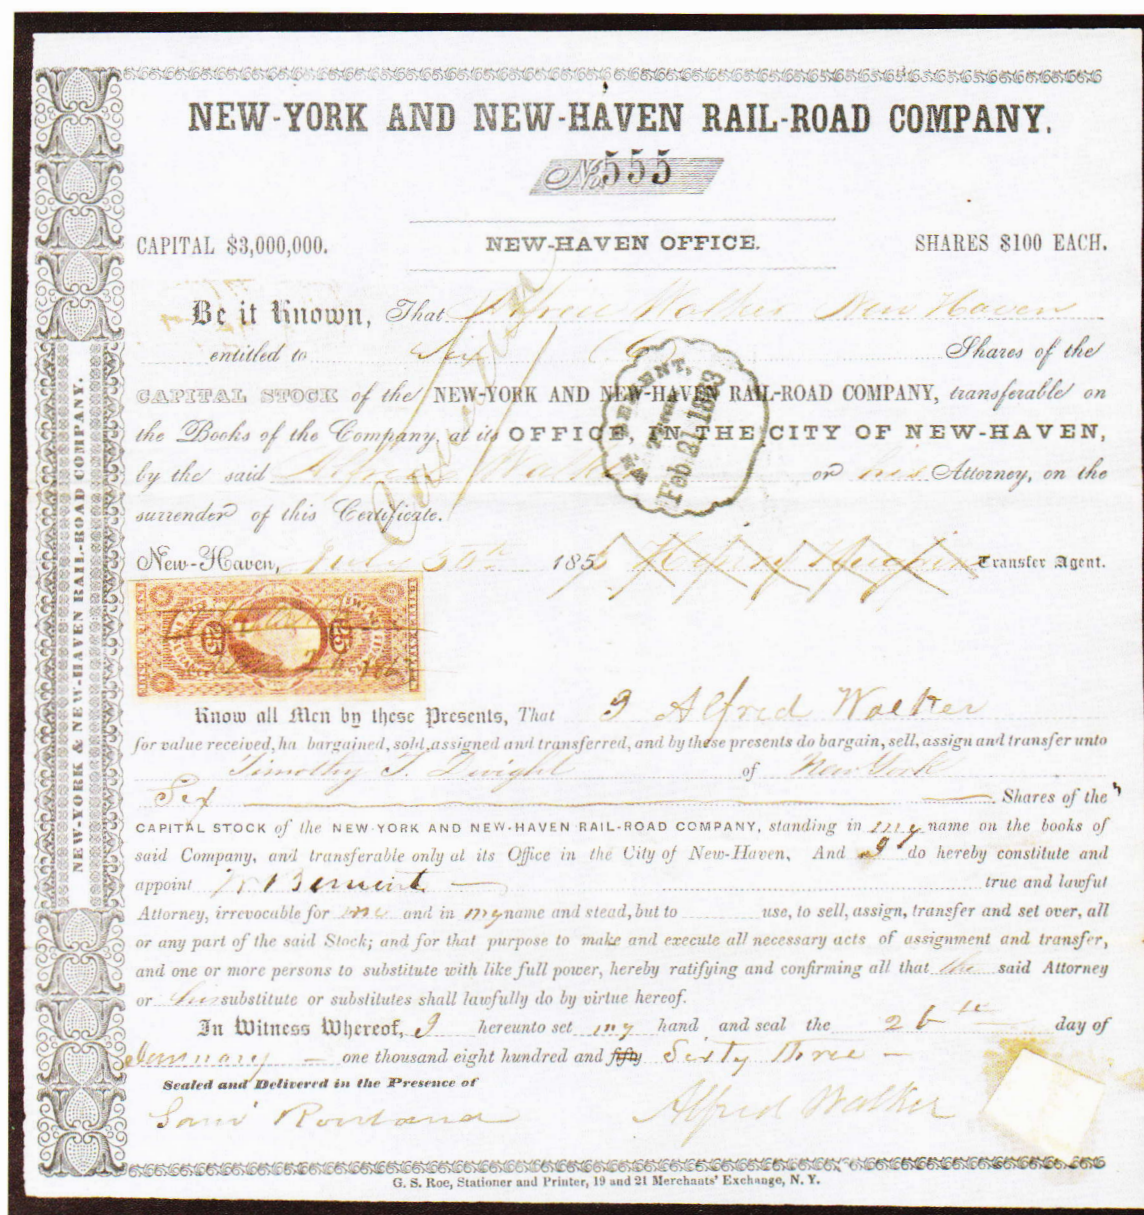 NEW-YORK AND NEW-HAVEN RAIL-ROAD COMPANY.
No. 555
CAPITAL $3,000,000. NEW-HAVEN OFFICE. SHARES $100 EACH.
Be it Known, That Alfred Walker New Haven
entitled to Six (6) Shares of the
CAPITAL STOCK of the NEW-YORK AND NEW-HAVEN RAIL-ROAD COMPANY, transferable on
the Books of the Company, at its OFFICE, IN THE CITY OF NEW-HAVEN,
by the said Alfred Walker or his Attorney, on the
surrender of this Certificate.
BEMENT,
Feb 21, 1863
New-Haven, July 5th 185 Transfer Agent.
25 25
NEW-YORK & NEW-HAVEN RAIL-ROAD COMPANY.
Know all Men by these Presents, That I Alfred Walker
for value received, ha bargained, sold, assigned and transferred, and by these presents do bargain, sell, assign and transfer unto
Timothy T. Dwight of New York
Six Shares of the
CAPITAL STOCK of the NEW-YORK AND NEW-HAVEN RAIL-ROAD COMPANY, standing in my name on the books of
said Company, and transferable only at its Office in the City of New-Haven, And I do hereby constitute and
appoint Bement true and lawful
Attorney, irrevocable for me and in my name and stead, but to use, to sell, assign, transfer and set over, all
or any part of the said Stock; and for that purpose to make and execute all necessary acts of assignment and transfer,
and one or more persons to substitute with like full power, hereby ratifying and confirming all that the said Attorney
or his substitute or substitutes shall lawfully do by virtue hereof.
In Witness Whereof, I hereunto set my hand and seal the 26th day of
January one thousand eight hundred and fifty Sixty Three
Sealed and Delivered in the Presence of
Saml Rowland Alfred Walker
G. S. Roe, Stationer and Printer, 19 and 21 Merchants' Exchange, N. Y.